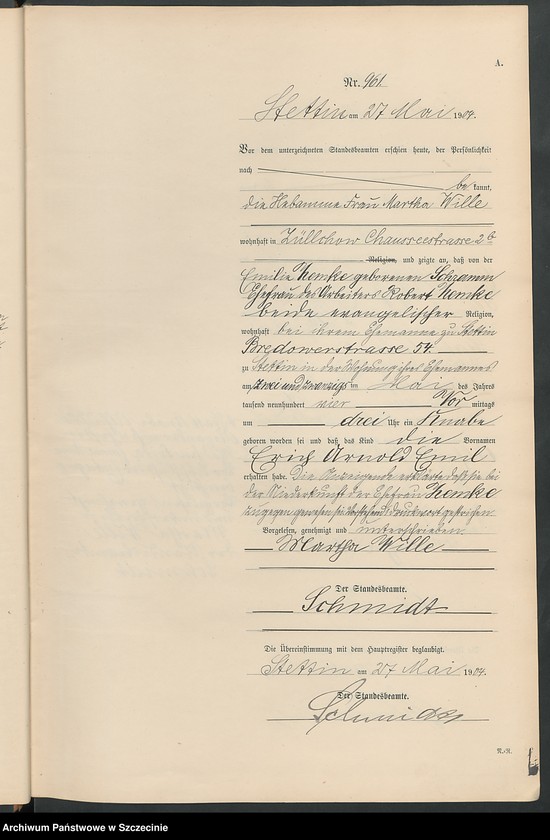 A.
Nr. 961
Stettin am 27 Mai 1904.
Vor dem unterzeichneten Standesbeamten erschien heute, der Persönlichkeit
nach
be kannt,
die Hebamme Frau Martha Wille
wohnhaft in Züllchow Chausseestrasse 2
Religion, und zeigte an, daß von der
Emilie Hemke geborenen Schramm
Ehefrau des Arbeiters Robert Hemke
beide evangelischer Religion,
wohnhaft bei ihrem Ehemanne zu Stettin
Bredowerstrasse 54.
zu Stettin in der Wohnung ihres Ehemannes
am zwei und zwanzigs ten Mai des Jahres
tausend neunhundert vier Vor mittags
um drei Uhr ein Knabe
geboren worden sei und daß das Kind die Vornamen
Erich Arnold Emil
erhalten habe. Die Anzeigende erklärte daß sie bei
der Niederkunft der Ehefrau Hemke
zugegen gewesen sei. Vorstehend 1 Druckwort gestrichen.
Vorgelesen, genehmigt und unterschrieben
Martha Wille
Der Standesbeamte.
Schmidt
Die Übereinstimmung mit dem Hauptregister beglaubigt.
Stettin am 27 Mai 1904.
Der Standesbeamte.
Schmidt
Archiwum Państwowe w Szczecinie